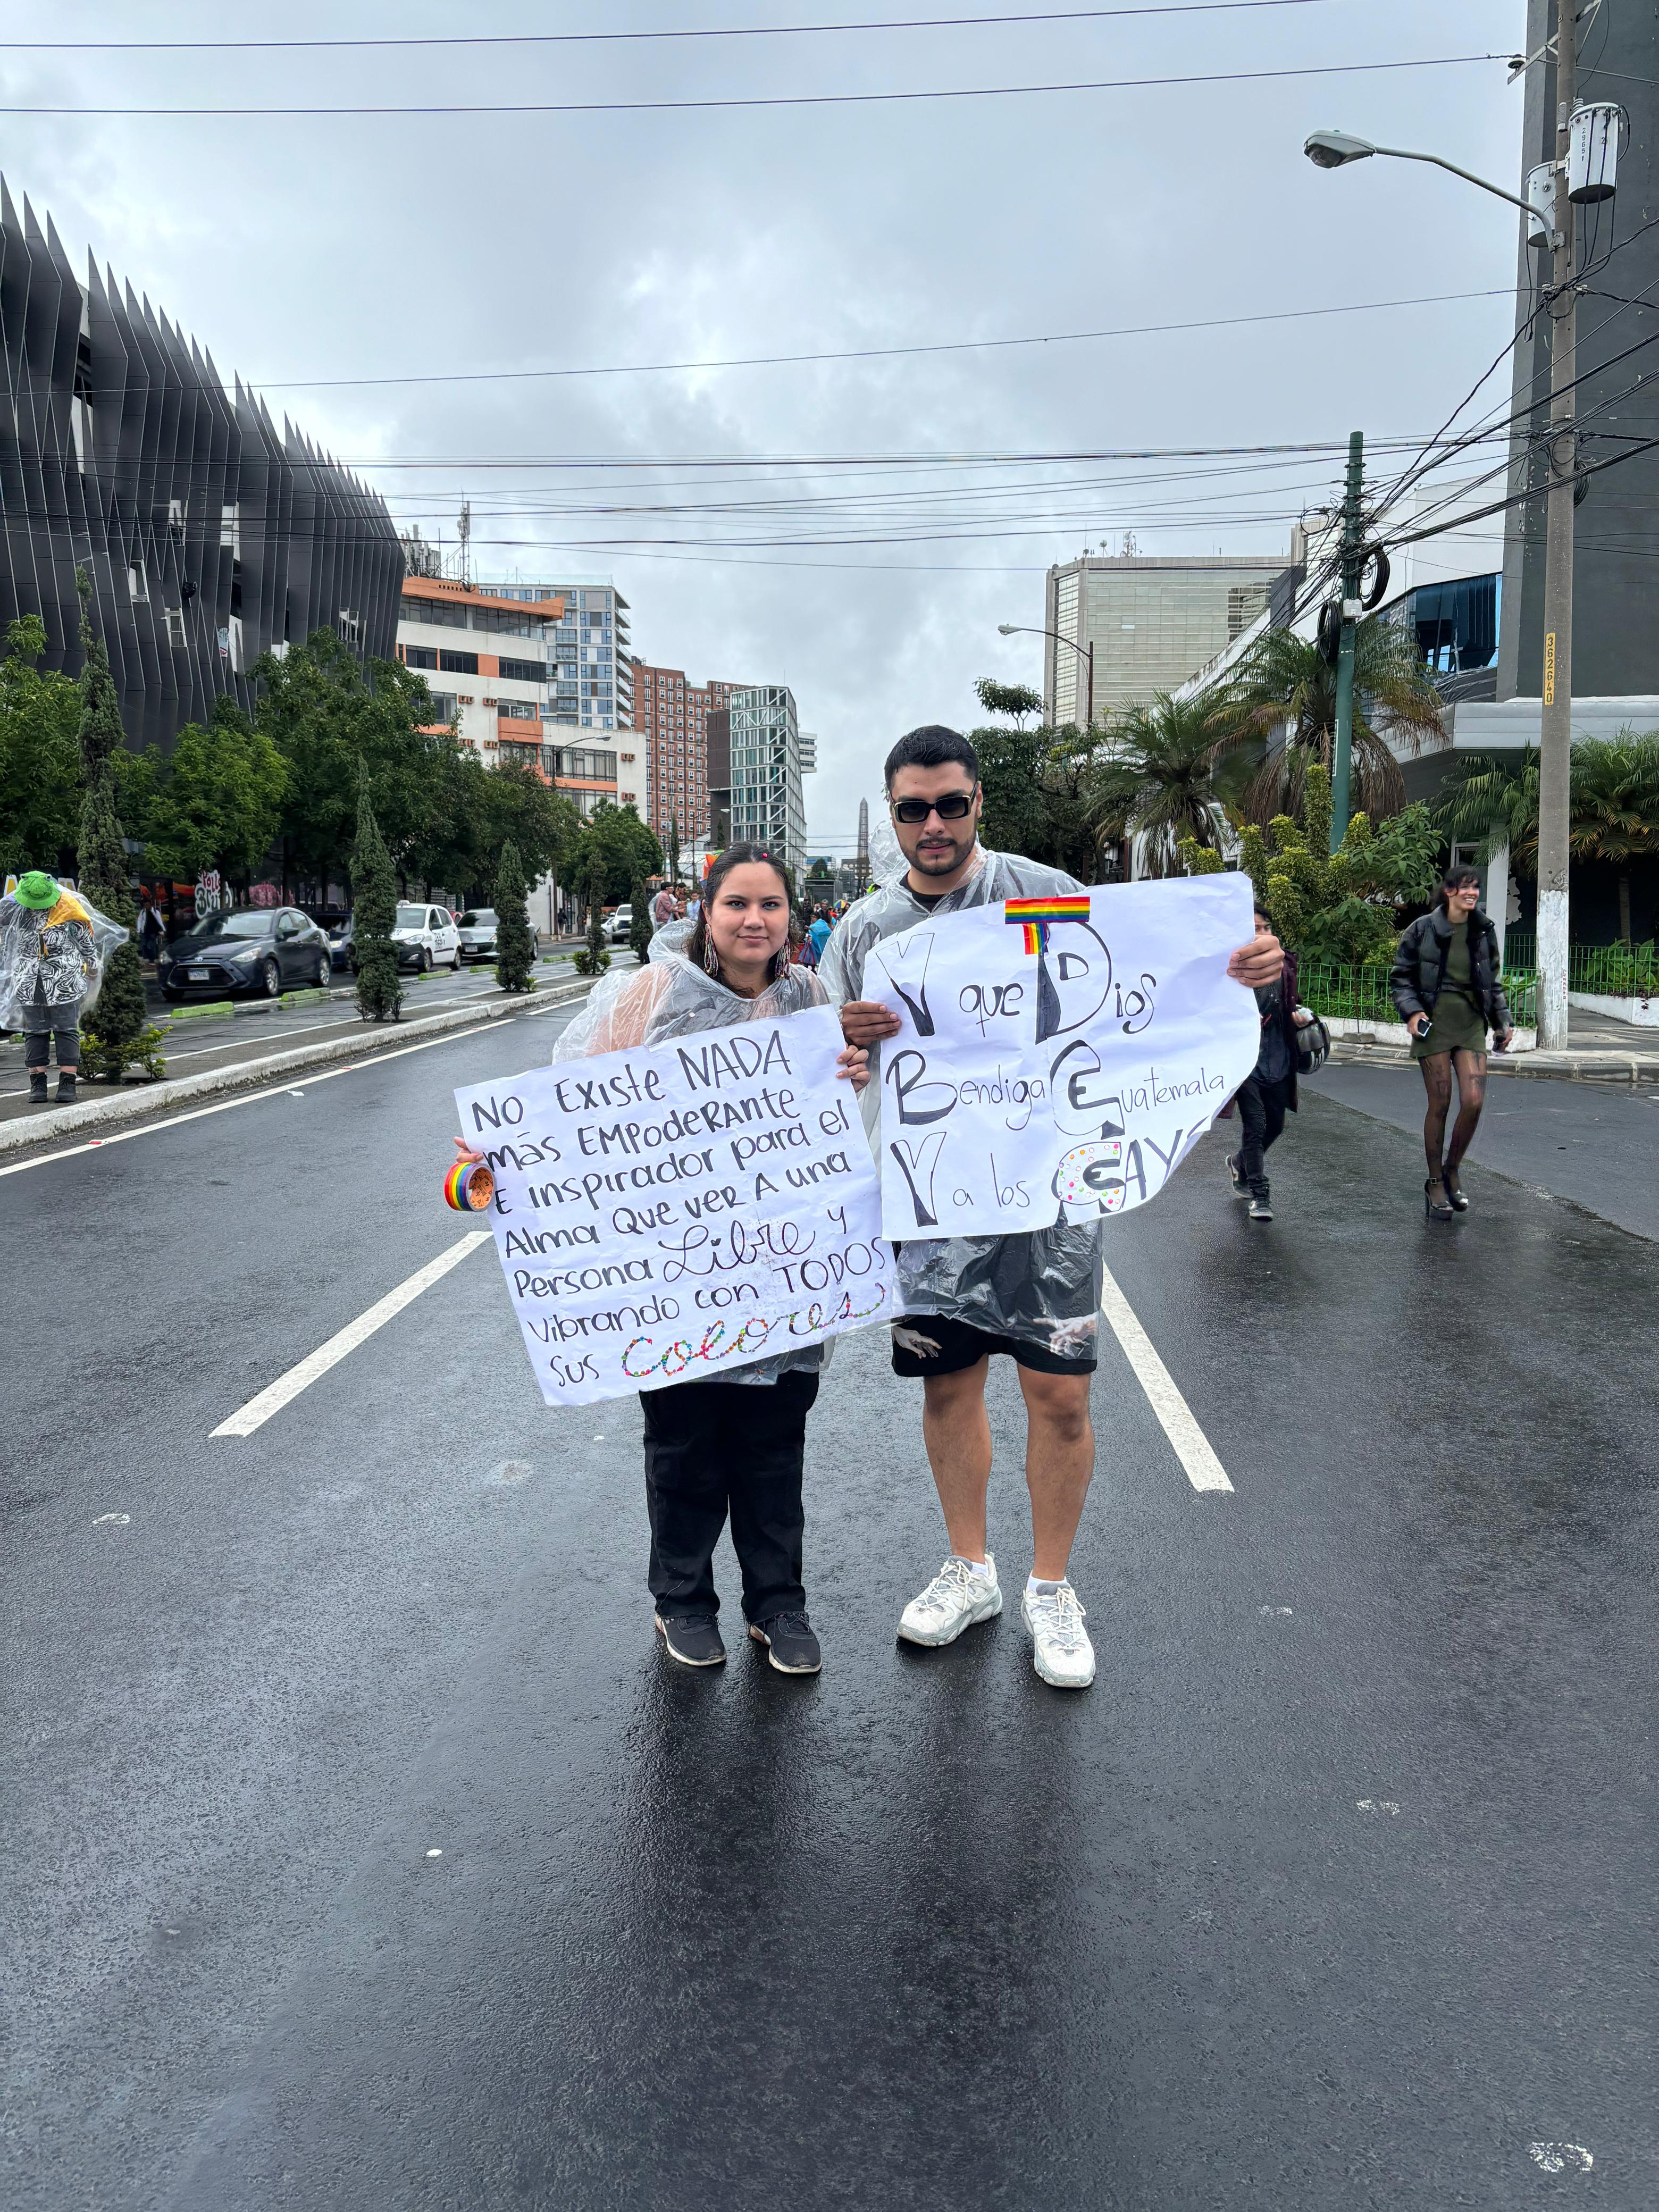 NO EXISTE NADA
más EMPODERANTE
E inspirador para el
Alma Que ver A una
Persona Libre y
Vibrando con TODOS
sus colores
Y que Dios
Bendiga Guatemala
Y a los GAYS
362640
29651